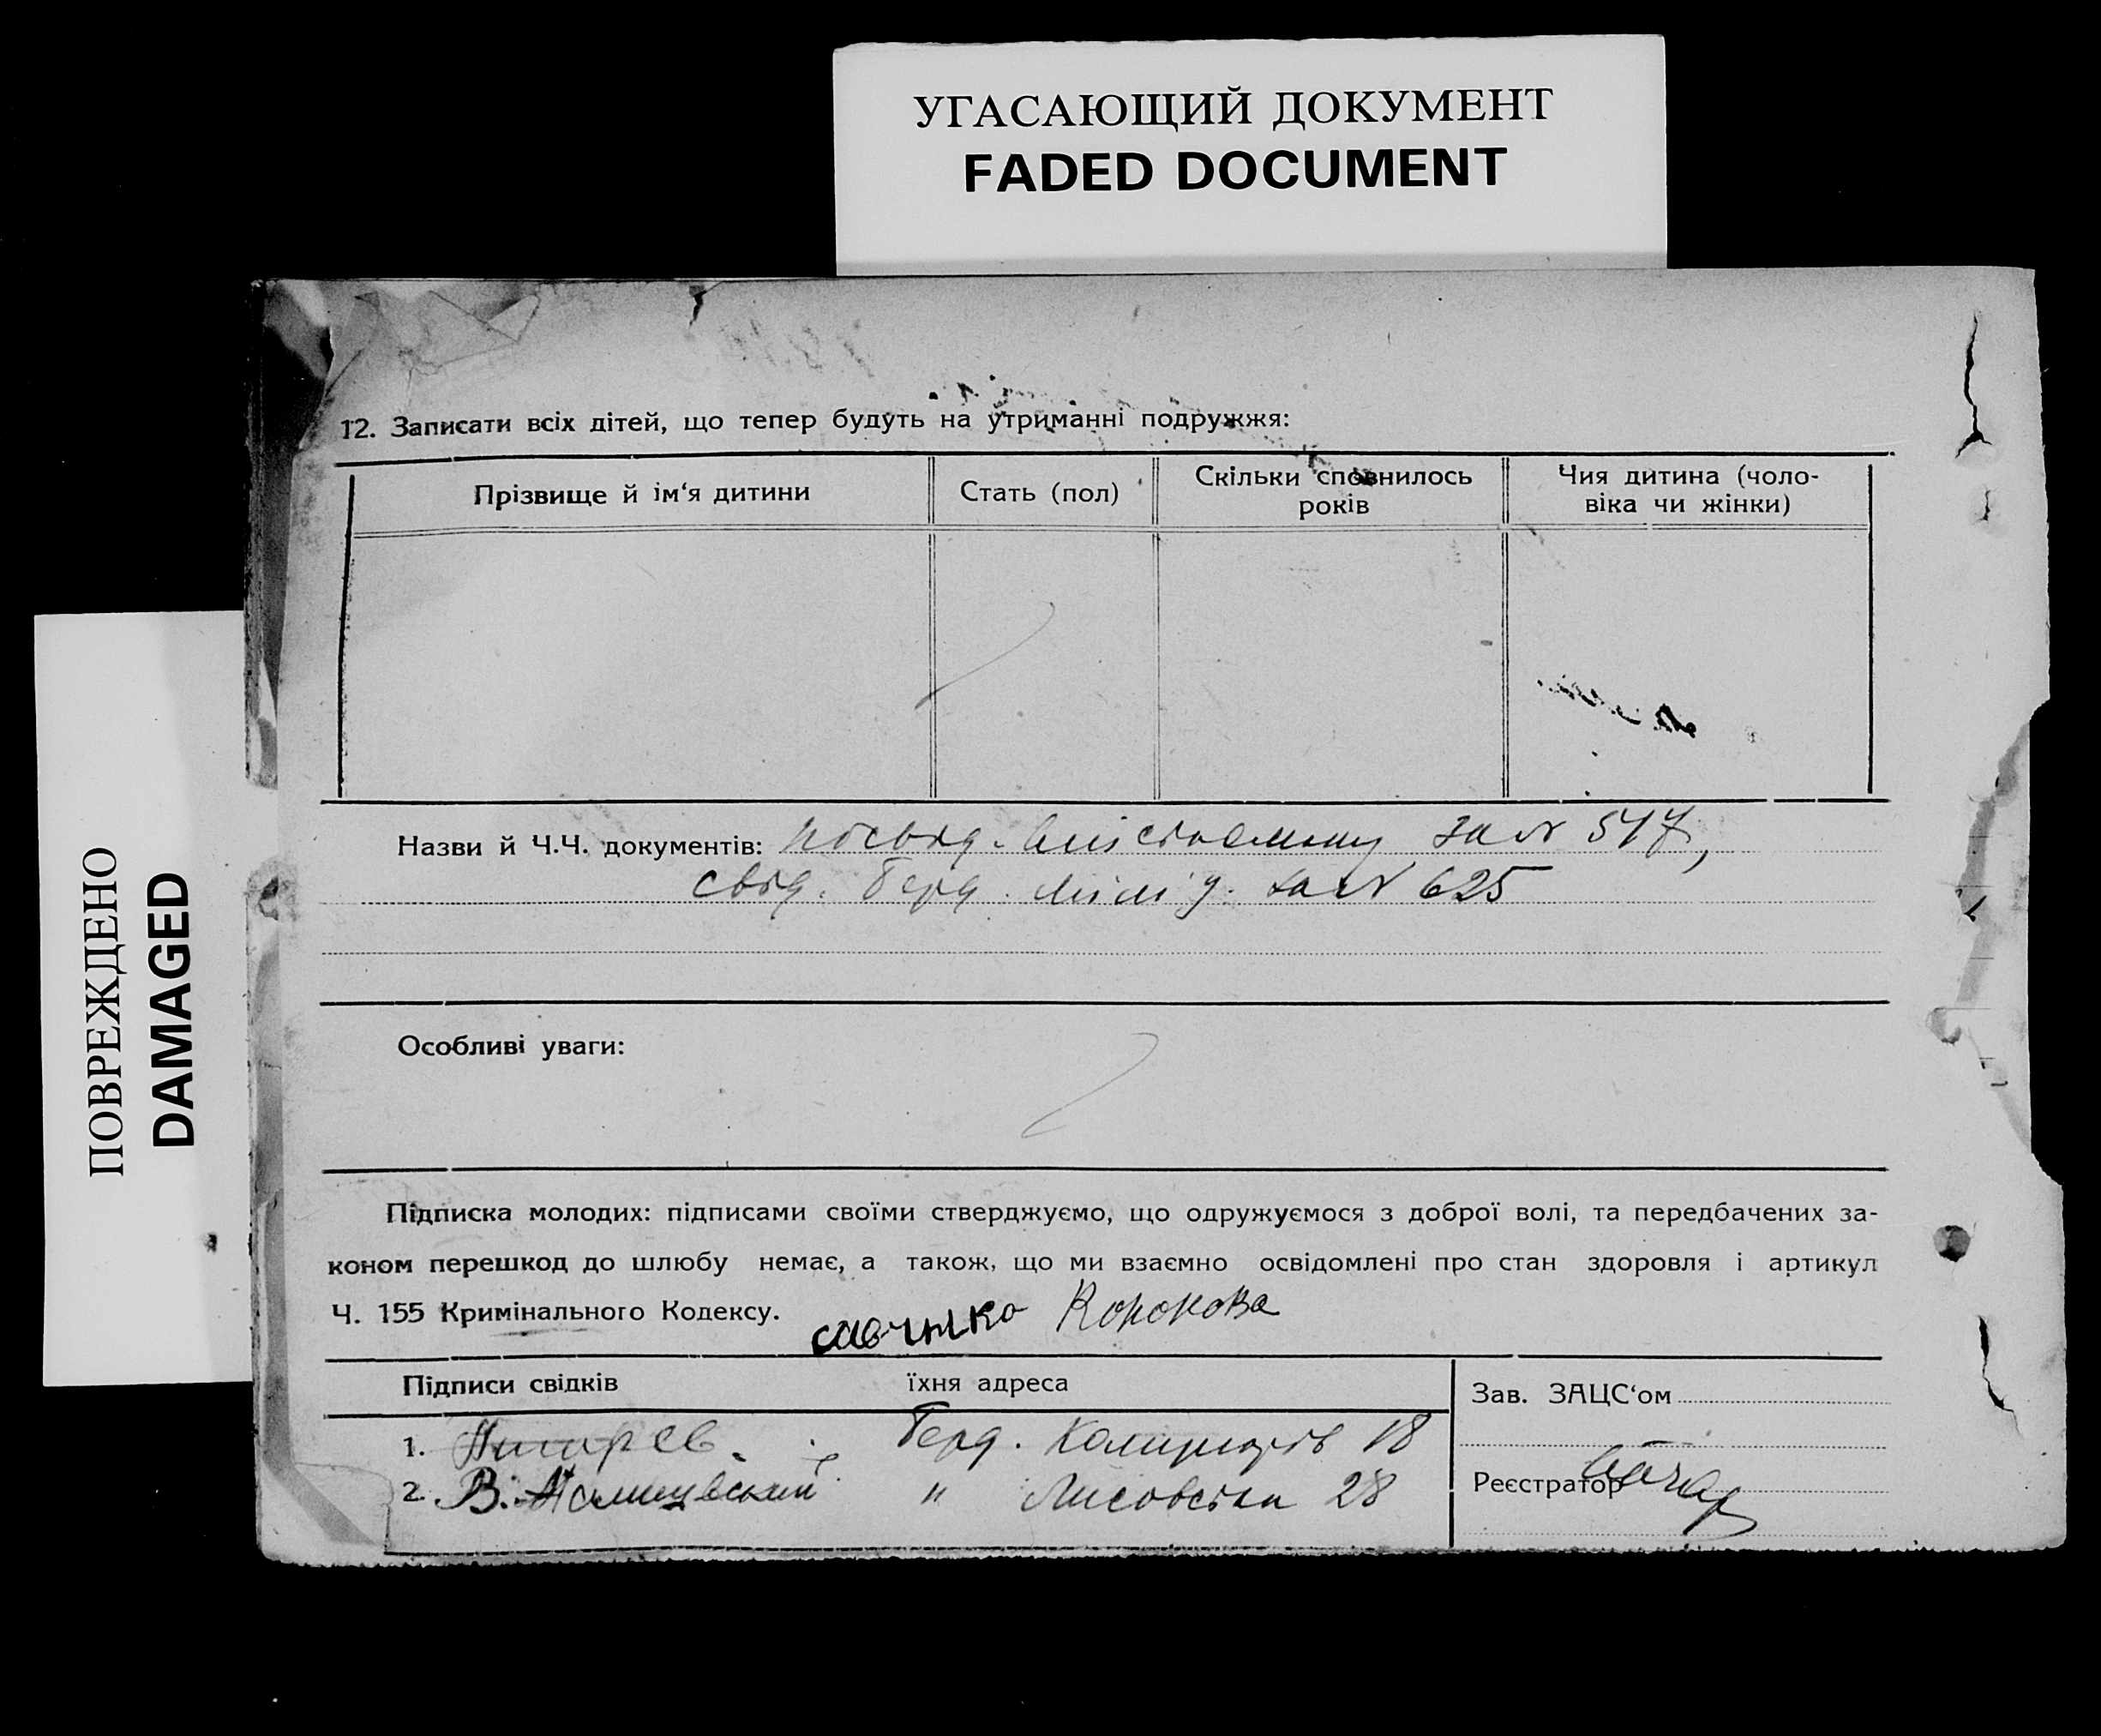 УГАСАЮЩИЙ ДОКУМЕНТ
FADED DOCUMENT
ПОВРЕЖДЕНО
DAMAGED
12. Записати всіх дітей, що тепер будуть на утриманні подружжя:
Прізвище й ім‘я дитини
Стать (пол)
Скільки сповнилось
років
Чия дитина (чоло-
віка чи жінки)
Назви й Ч.Ч. документів: посвід. за № 517,
свід. Берд. за № 625
Особливі уваги:
Підписка молодих: підписами своїми стверджуємо, що одружуємося з доброї волі, та передбачених за-
коном перешкод до шлюбу немає, а також, що ми взаємно освідомлені про стан здоровля і артикул
Ч. 155 Кримінального Кодексу. савчико
Підписи свідків їхня адреса
1. Берд. 18
2. В. " Лисовська 28
Зав. ЗАЦС‘ом
Реєстратор